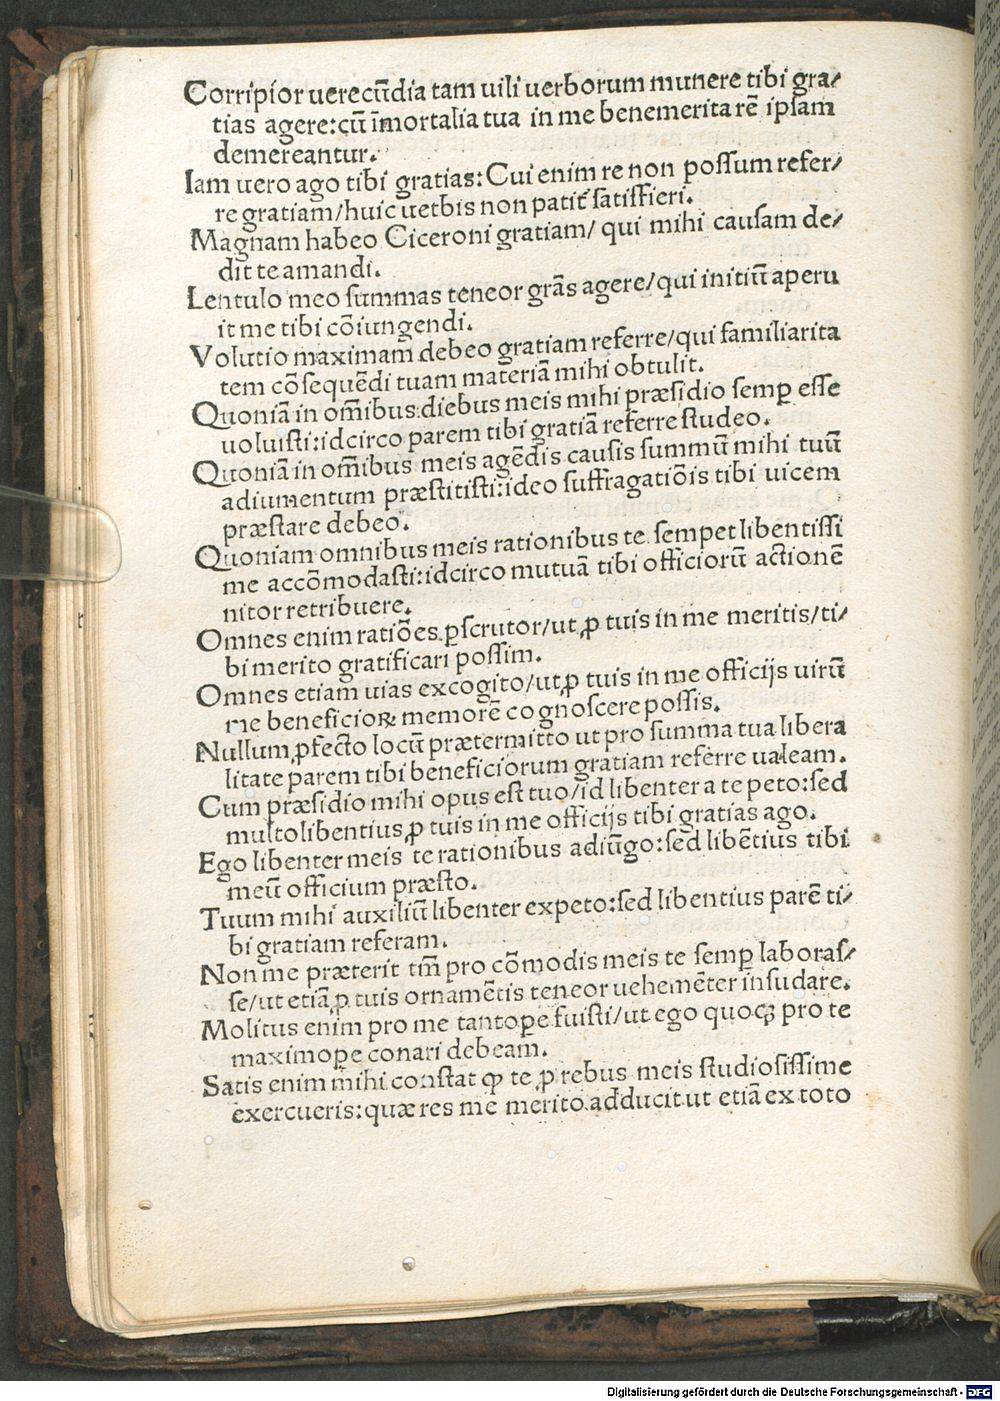 Corripior uerecūdia tam uili uerborum munere tibi gra/
tias agere:cū īmortalia tua in me benemerita rē ipsam
demereantur.
Iam uero ago tibi gratias:Cui enim re non possum refer/
re gratiam/huic uetbis non patit᷑ satisfieri.
Magnam habeo Ciceroni gratiam/ qui mihi causam de/
dit te amandi.
Lentulo meo summas teneor grãs agere/qui initiū aperu
it me tibi cōiungendi.
Volutio maximam debeo gratiam referre/qui familiarita
tem cōsequēdi tuam materiā mihi obtulit.
Quoniā in om̄ibus diebus meis mihi præsidio semꝑ esse
uoluisti:idcirco parem tibi gratiā referre studeo.
Quoniā in om̄ibus meis agēdis causis summū mihi tuū
adiumentum præstitisti:ideo suffragatiōis tibi uicem
præstare debeo.
Quoniam omnibus meis rationibus te sempet libentissi
me accōmodasti:idcirco mutuā tibi officiorū actionē
nitor retribuere.
Omnes enim ratiōes ꝑscrutor/ut ꝓ tuis in me meritis/ti/
bi merito gratificari possim.
Omnes etiam uias excogito/ut ꝓ tuis in me officijs uirū
me beneficioꝝ memorē cognoscere possis.
Nullum ꝓfecto locū prætermitto ut pro summa tua libera
litate parem tibi beneficiorum gratiam referre ualeam.
Cum præsidio mihi opus est tuo/id libenter a te peto:sed
multo libentius ꝓ tuis in me officijs tibi gratias ago.
Ego libenter meis te rationibus adiūgo:sed libētius tibi
meū officium præsto.
Tuum mihi auxiliū libenter expeto:sed libentius parē ti/
bi gratiam referam.
Non me præterit tm̄ pro cōmodis meis te semꝑ laboras/
se/ut etiā ꝓ tuis ornamētis teneor uehemēter insudare.
Molitus enim pro me tantoꝑe fuisti/ut ego quoqꝫ pro te
maximoꝑe conari debeam.
Satis enim mihi constat ꝙ te ꝓ rebus meis studiosissime
exercueris:quæ res me merito adducit ut etiā ex toto
Digitalisierung gefördert durch die Deutsche Forschungsgemeinschaft - DFG